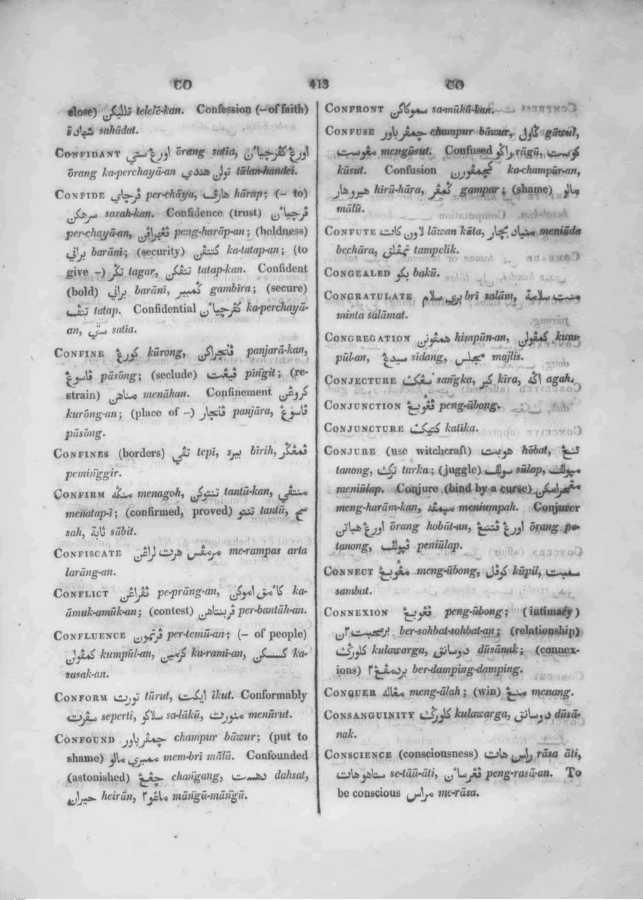 CO 413 CO
close) تاليكن telelē-kan. Confession (– of faith)
شهادة sahādat.
CONFIDANT اورڠ ستي ōrang satia, اورڠ كفرچيائن
ōrang ka-perchayā-an تولن هندي tūlan-handei.
CONFIDE فرچاي per-chāya, هارف hārap; (– to)
سرهكن sarah-kan. Confidence (trust) فرچيائن
per-chayā-an, peng-harāp-an; (boldness)
براني barāni; (security) كتتفن ka-tatap-an; (to
give –) تڬر tagar, تتفكن tatap-kan. Confident
(bold) براني barāni, ڬمبير gambīra; (secure)
تتف tatap. Confidential كفرچيائن ka-perchayā-
an, ستي satia.
CONFINE كورڠ kūrong, فنجراكن panjarā-kan,
فاسوڠ pāsōng; (seclude) فيڠيت pīngit; (re-
strain) مناهن menāhan. Confinement كروڠن
kurōng-an; (place of –) فنجار panjāra, فاسوڠ
pāsōng.
CONFINES (borders) تفي tepī, بيره bīrih,
peminggir.
CONFIRM منڬه menagoh, تنتوكن tantū-kan,
menatap-i; (confirmed, proved) تنتو tantū, صح
sah, ثابة sābit.
CONFISCATE مرمفس هرت لراڠن me-rampas arta
larāng-an.
CONFLICT ففراڠن pe-prāng-an, ka-
āmuk-amūk-an; (contest) فربنتاهن per-bantāh-an.
CONFLUENCE فرتمون per-temū-an; (– of people)
كمفولن kumpūl-an, كرمين ka-rami-an, ka-
sasak-an.
CONFORM تورت tūrut, ايكت īkut. Conformably
سفرت seperti, سلاكو sa-lākū, منورت menūrut.
CONFOUND چمفر باور champur bāwur; (put to
shame) ممبري مالو mem-brī mālū. Confounded
(astonished) چڠڠ changang, دهست dahsat,
حيران heirān, māngū-māngū.
CONFRONT سموكاكن sa-mūkā-kan.
CONFUSE چمفر باور champur bāwur, ڬاول gāwul,
mengūsut. Confused راڬو rāgū, كوست
kūsut. Confusion كچمفورن ka-champūr-an,
هيروهار hirū-hāra, ڬمفر gampar; (shame) مالو
mālū.
CONFUTE لاون كات lāwan kāta, منياد بچار meniāda
bechāra, تمفلق tampelik.
CONGEALED بكو bakū.
CONGRATULATE بري سلام brī salām,
minta salāmat.
CONGREGATION همفونن himpūn-an, كمفولن kum-
pūl-an, سيدڠ sidang, مجلس majlis.
CONJECTURE سڠك sangka, كير kīra, اڬه agah.
CONJUNCTION فڠوبڠ peng-ūbong.
CONJUNCTURE كتيك katīka.
CONJURE (use witchcraft) هوبت hōbat, تنڠ
tanong, ترك tarka; (juggle) سولف sūlap,
meniūlap. Conjure (bind by a curse) مڠحرامكن
meng-harām-kan, meniumpah. Conjurer
اورڠ هباتن ōrang hobāt-an, اورڠ فتنڠ ōrang pe-
tanong, فيولف peniūlap.
CONNECT مڠوبڠ meng-ūbong, كوفل kūpil,
sambat.
CONNEXION فڠوبڠ peng-ūbong; (intimacy)
ber-sohbat-sohbat-an; (relationship)
كلورڬ kulawarga, دوسانق dūsānak; (connex-
ions) بردمفڠ۲ ber-damping-damping.
CONQUER مڠاله meng-ālah; (win) منڠ menang.
CONSANGUINITY كلورڬ kulawarga, دوسانق dūsā-
nak.
CONSCIENCE (consciousness) راس هات rāsa āti,
se-tāū-āti, فڠرسائن peng-rasā-an. To
be conscious مراس me-rāsa.